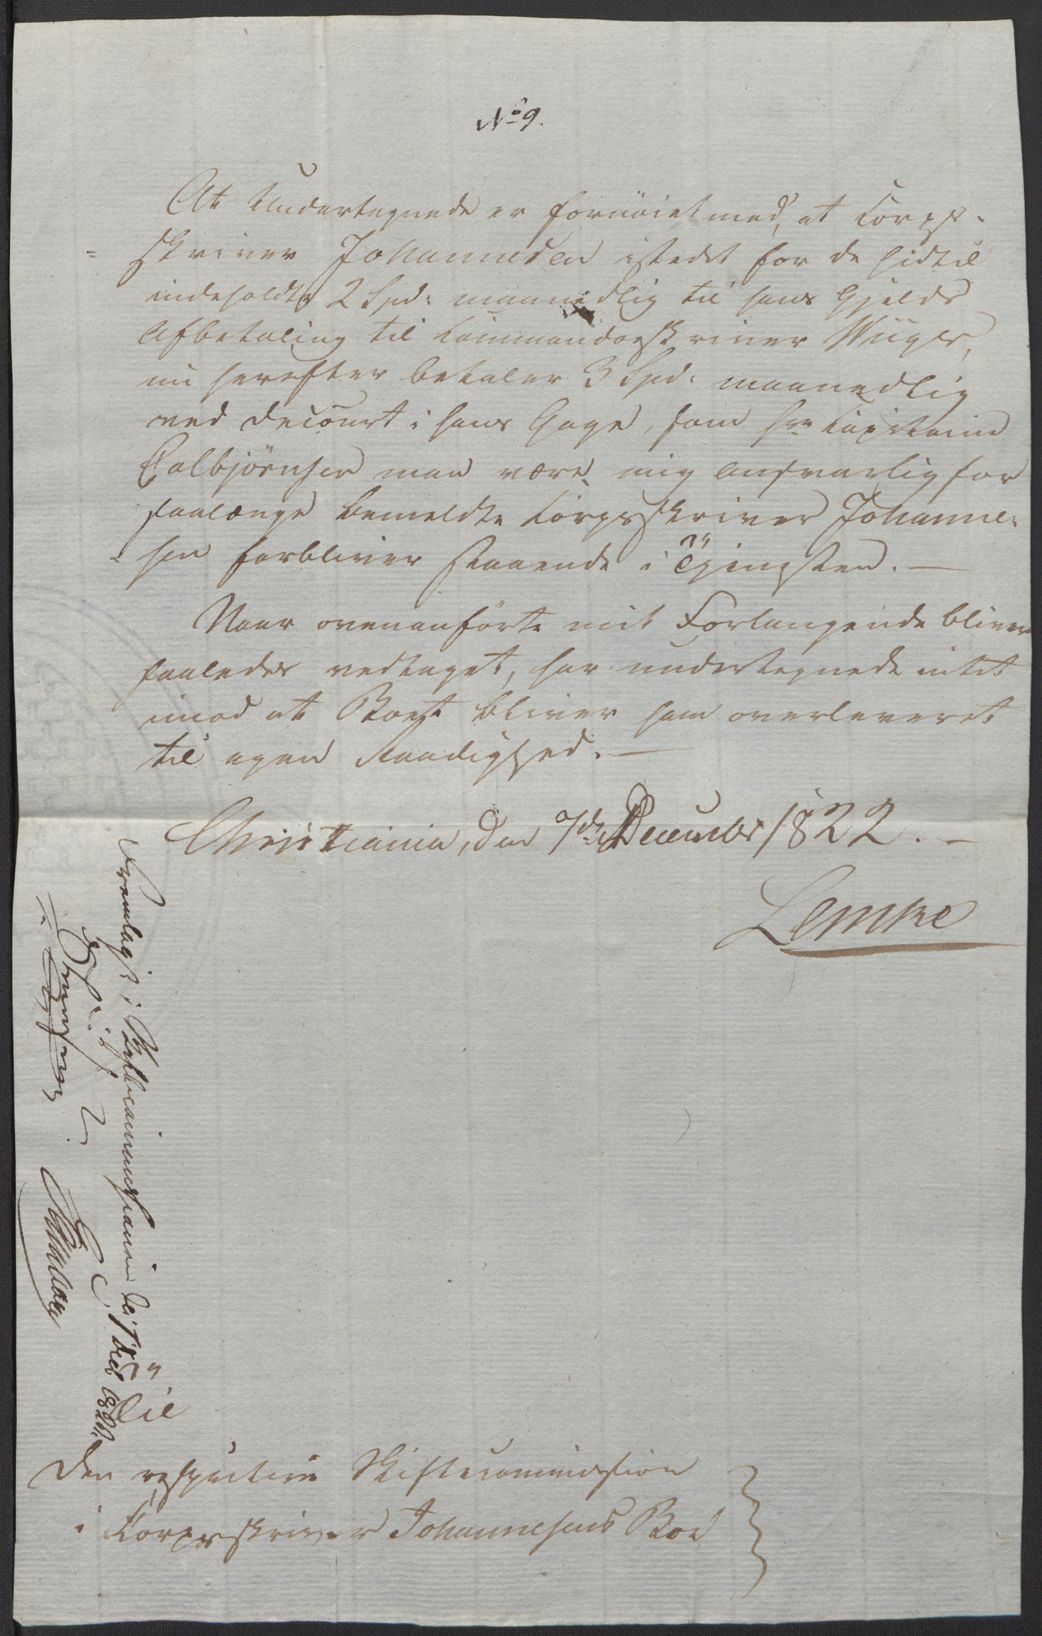 No 9.
At Undertegnede er fornøiet med, at Corps-
skriver Johannesen istedet for de hidtil
indeholdte 2 Spd: maanedlig til hans Gjelds
Afbetaling til Commandoskriver Wiiger,
nu herefter betaler 3 Spd: maanedlig
ved Decourt i hans Gage, som Hr Capitaine
Colbjørnsen maa være mig ansvarlig for
saalænge bemeldte Corpsskriver Johanne-
sen forbliver staaende i Tjenesten. —
Naar ovenanførte mit Forlangende bliver
saaledes vedtaget, har undertegnede intet
imod at Boet bliver ham overleveret
til egen Raadighed. —
Christiania, den 7de December 1822. —
Lemke
Fremlagt i Skiftecommissionen den 7 Dec 1822.
Til
Den respective Skiftecommission
i Corpsskriver Johannesens Boe